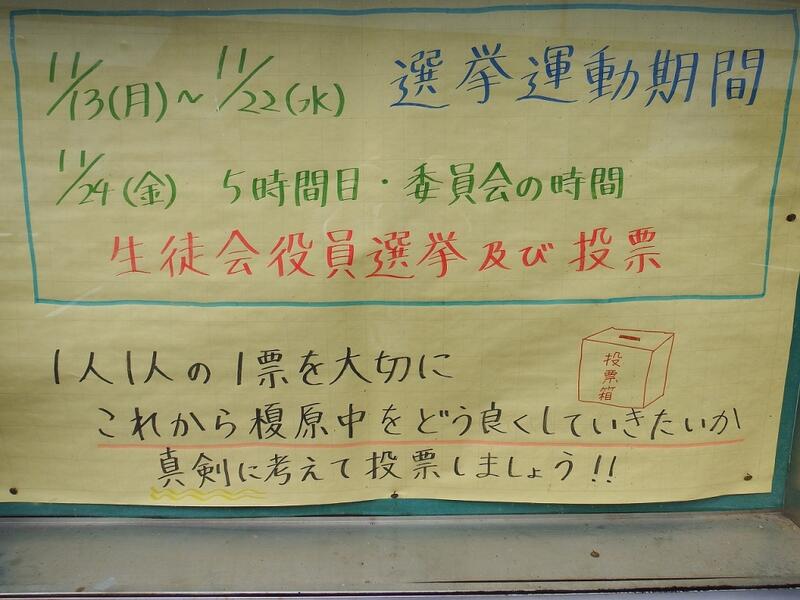 11/13(月)~11/22(水) 選挙運動期間
11/24(金) 5時間目・委員会の時間
生徒会役員選挙及び投票
投票箱
1人1人の1票を大切に
これから榎原中をどう良くしていきたいか
真剣に考えて投票しましょう!!